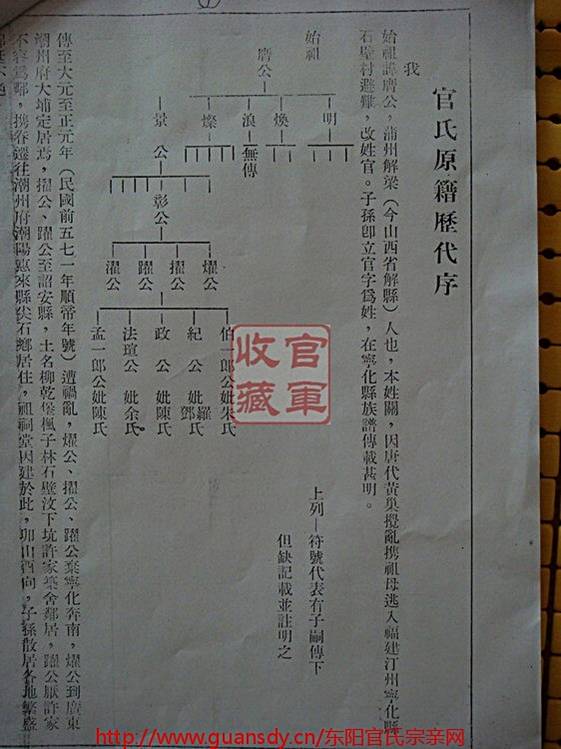 官氏原籍歷代序
我
始祖諱膺公，蒲州解梁（今山西省解縣）人也，本姓關，因唐代黃巢攪亂携祖母逃入福建汀州寧化縣
石壁村避難，改姓官。子孫卽立官字爲姓，在寧化縣族譜傳載甚明。
始祖
膺公
明
煥
浪 無傳
燦
景公
彰公
燿公
擢公
躍公
濯公
伯一郎公妣朱氏
紀公妣羅氏鄧氏
政公妣陳氏
法瑄公妣余氏
孟一郎公妣陳氏
上列｜符號代表有子嗣傳下
但缺記載並註明之
傳至大元至正元年（民國前五七一年順帝年號）遭禍亂，燿公、擢公、躍公棄寧化奔南，燿公到廣東
潮州府大埔定居焉，擢公、躍公至詔安縣，土名柳乾堡楓子林石壁汶下坑許家寮舍鄰居，躍公厭許家
不容爲鄰，携眷遷往潮州府潮陽惠來縣尖石鄉居住，祖祠堂因建於此，山酉向，子孫散居各地繁盛
官軍
收藏
http://www.guansdy.cn/东阳官氏宗亲网